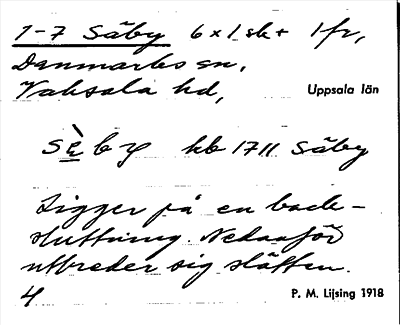 1-7 Säby 6 x 1 sk + 1 fr,
Danmarks sn,
Vaksala hd, Uppsala län
sὲby kb 1711 Säby
Ligger på en back-
sluttning. Nedanför
utbreder sig slätten.
4 P. M. Lijsing 1918